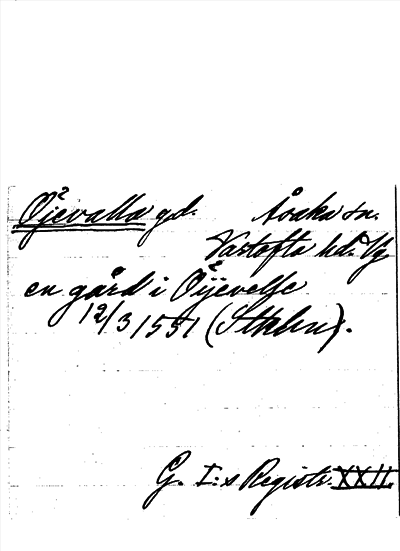 Öjevalla gd. Åsaka sn.
Vartofta hd. Vg.
en gård i Öijevelle
12/3 1551 (Sthlm).
G. I:s Registr. XXII.